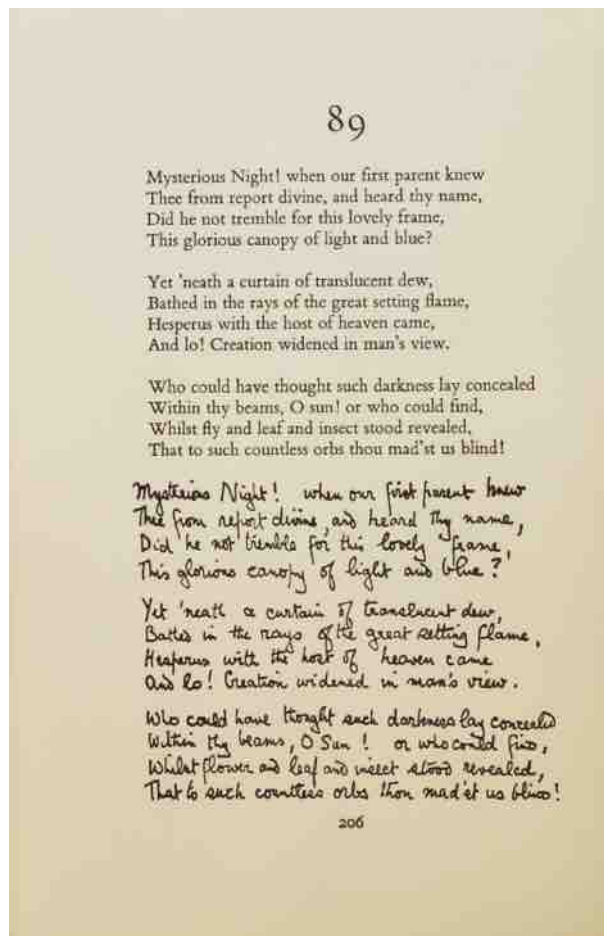 89
Mysterious Night! when our first parent knew
Thee from report divine, and heard thy name,
Did he not tremble for this lovely frame,
This glorious canopy of light and blue?
Yet 'neath a curtain of translucent dew,
Bathed in the rays of the great setting flame,
Hesperus with the host of heaven came,
And lo! Creation widened in man's view.
Who could have thought such darkness lay concealed
Within thy beams, O sun! or who could find,
Whilst fly and leaf and insect stood revealed,
That to such countless orbs thou mad'st us blind!
Mysterious Night! when our first parent knew
Thee from report divine, and heard thy name,
Did he not tremble for this lovely frame,
This glorious canopy of light and blue?
Yet 'neath a curtain of translucent dew,
Bathed in the rays of the great setting flame,
Hesperus with the host of heaven came
And lo! Creation widened in man's view.
Who could have thought such darkness lay concealed
Within thy beams, O Sun! or who could find,
Whilst flower and leaf and insect stood revealed,
That to such countless orbs thou mad'st us blind!
206